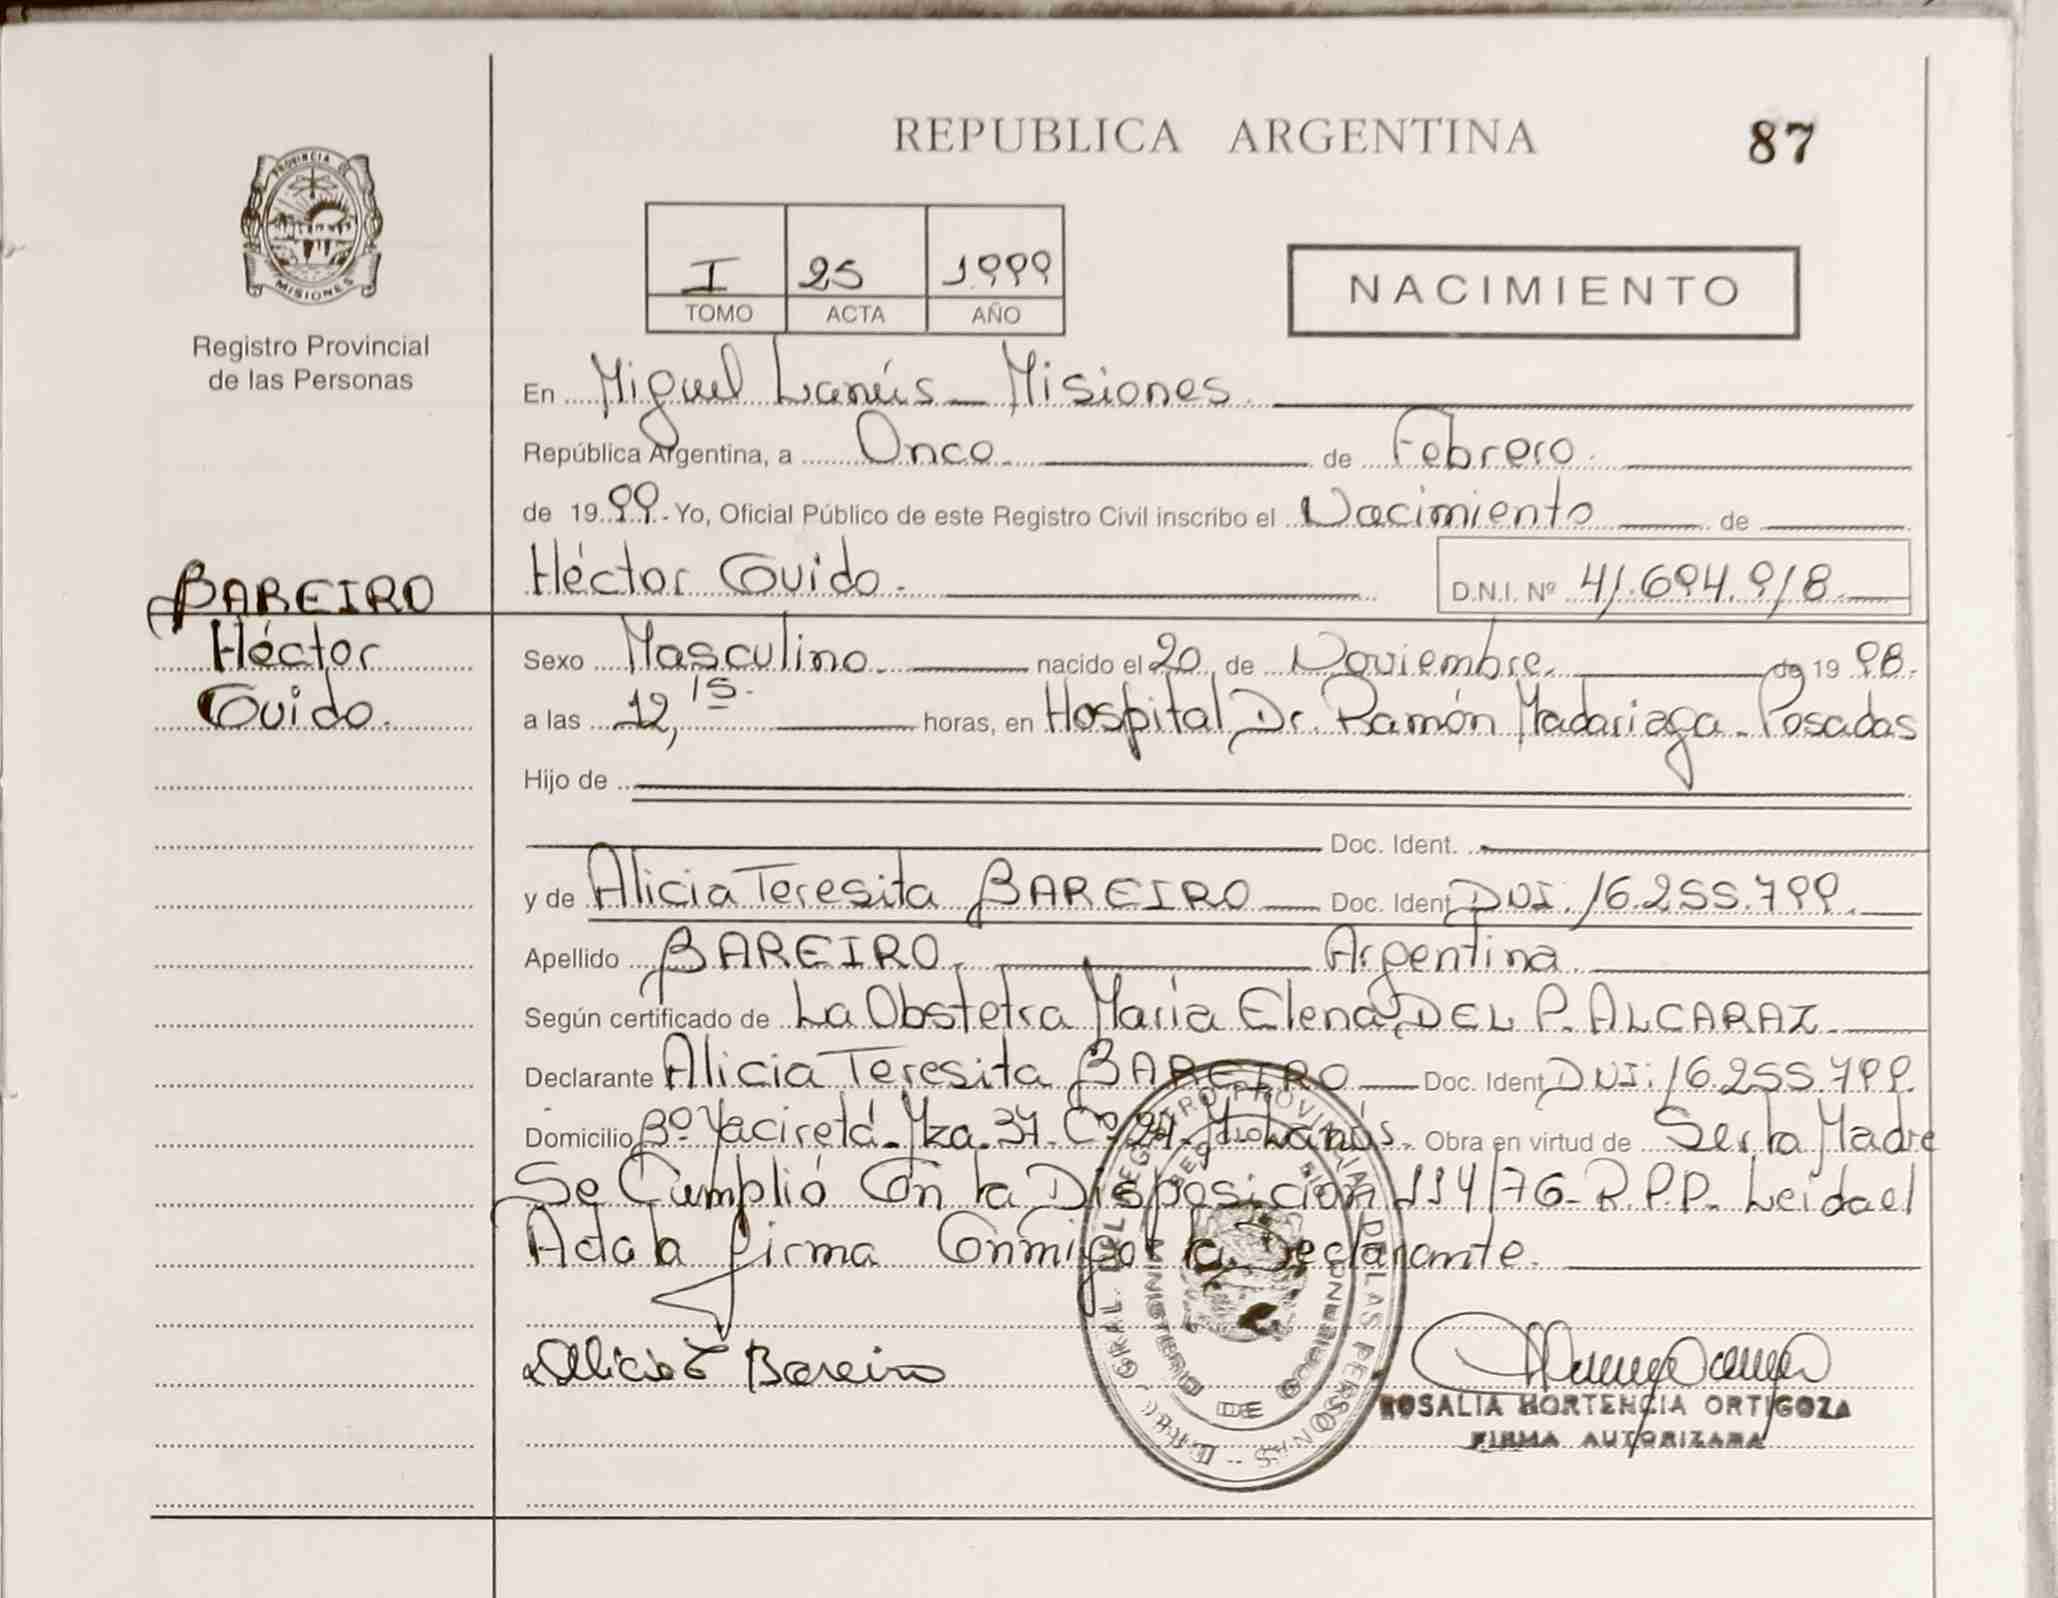 REPUBLICA ARGENTINA
87
PROVINCIA DE
MISIONES
Registro Provincial
de las Personas
I 25 1999
TOMO ACTA AÑO
NACIMIENTO
En Miguel Lanús - Misiones.
República Argentina, a Once de Febrero.
de 1999. Yo, Oficial Público de este Registro Civil inscribo el Nacimiento de
Héctor Guido. D.N.I. Nº 41.694.918
BAREIRO
Héctor
Guido.
Sexo Masculino. nacido el 20, de Noviembre. de 1998.
a las 12,15. horas, en Hospital Dr. Ramón Madariaga - Posadas
Hijo de
Doc. Ident.
y de Alicia Teresita BAREIRO Doc. Ident. DNI: 16.255.799.
Apellido BAREIRO. Argentina.
Según certificado de La Obstetra María Elena DEL P. ALCARAZ
Declarante Alicia Teresita BAREIRO Doc. Ident. DNI: 16.255.799.
Domicilio Bº Yaciretá - Mza. 37 - Cº 27 - M. Lanús. Obra en virtud de Ser la Madre
Se Cumplió Con la Disposición 114/76 - R.P.P. Leida el
Acta la firma Conmigo la Declarante.
Alicia T Bareiro
ROSALIA HORTENCIA ORTIGOZA
FIRMA AUTORIZADA
GRAL. DEL REGISTRO PROVINCIAL DE LAS PERSONAS
MINISTERIO DE GOBIERNO